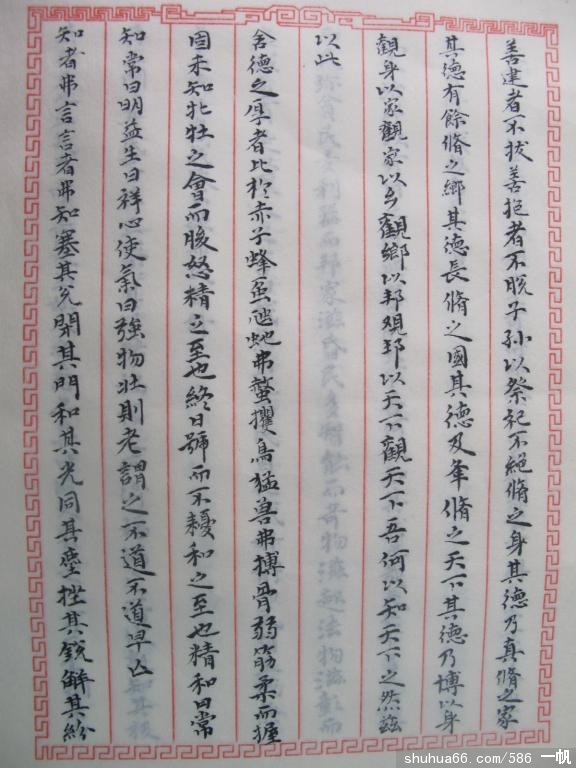 善建者不拔善抱者不脱子孙以祭祀不絕脩之身其德乃真脩之家
其德有餘脩之鄉其德長脩之國其德乃夆脩之天下其德乃博以身
觀身以家觀家以乡觀鄉以邦观邦以天下觀天下吾何以知天下之然兹
以此
含德之厚者比於赤子蜂虿虺蛇弗螫攫鳥猛兽弗搏骨弱筋柔而握
固未知牝牡之會而朘怒精之至也終日號而不嚘和之至也精和曰常
知常曰明益生曰祥心使氣曰強物壯則老謂之不道不道早亡
知者弗言言者弗知塞其兑閉其門和其光同其塵挫其銳解其紛
shuhua66.com/586 一帆